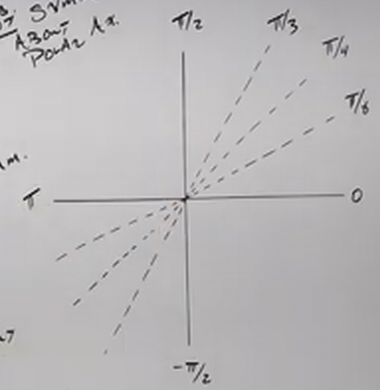 ABOUT
POLAR AX.
π/2
π/3
π/4
π/6
π
0
-π/2